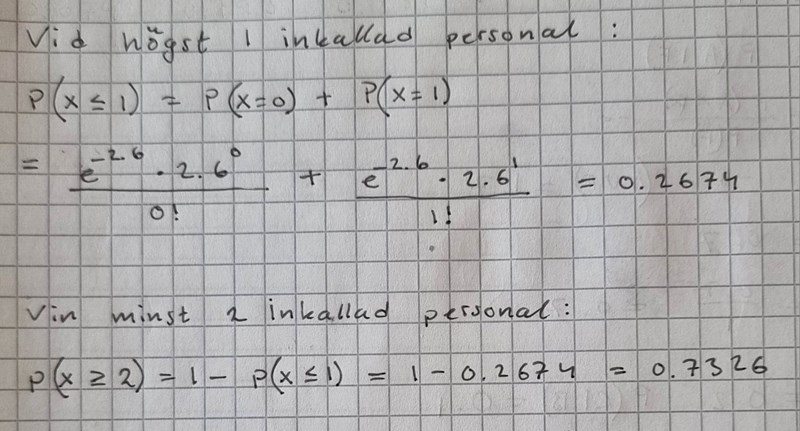 Vid högst 1 inkallad personal :
P(x ≤ 1) = P(x=0) + P(x=1)
= e^-2.6 · 2.6^0 / 0! + e^-2.6 · 2.6^1 / 1! = 0.2674
Vin minst 2 inkallad personal :
P(x ≥ 2) = 1 - P(x ≤ 1) = 1 - 0.2674 = 0.7326